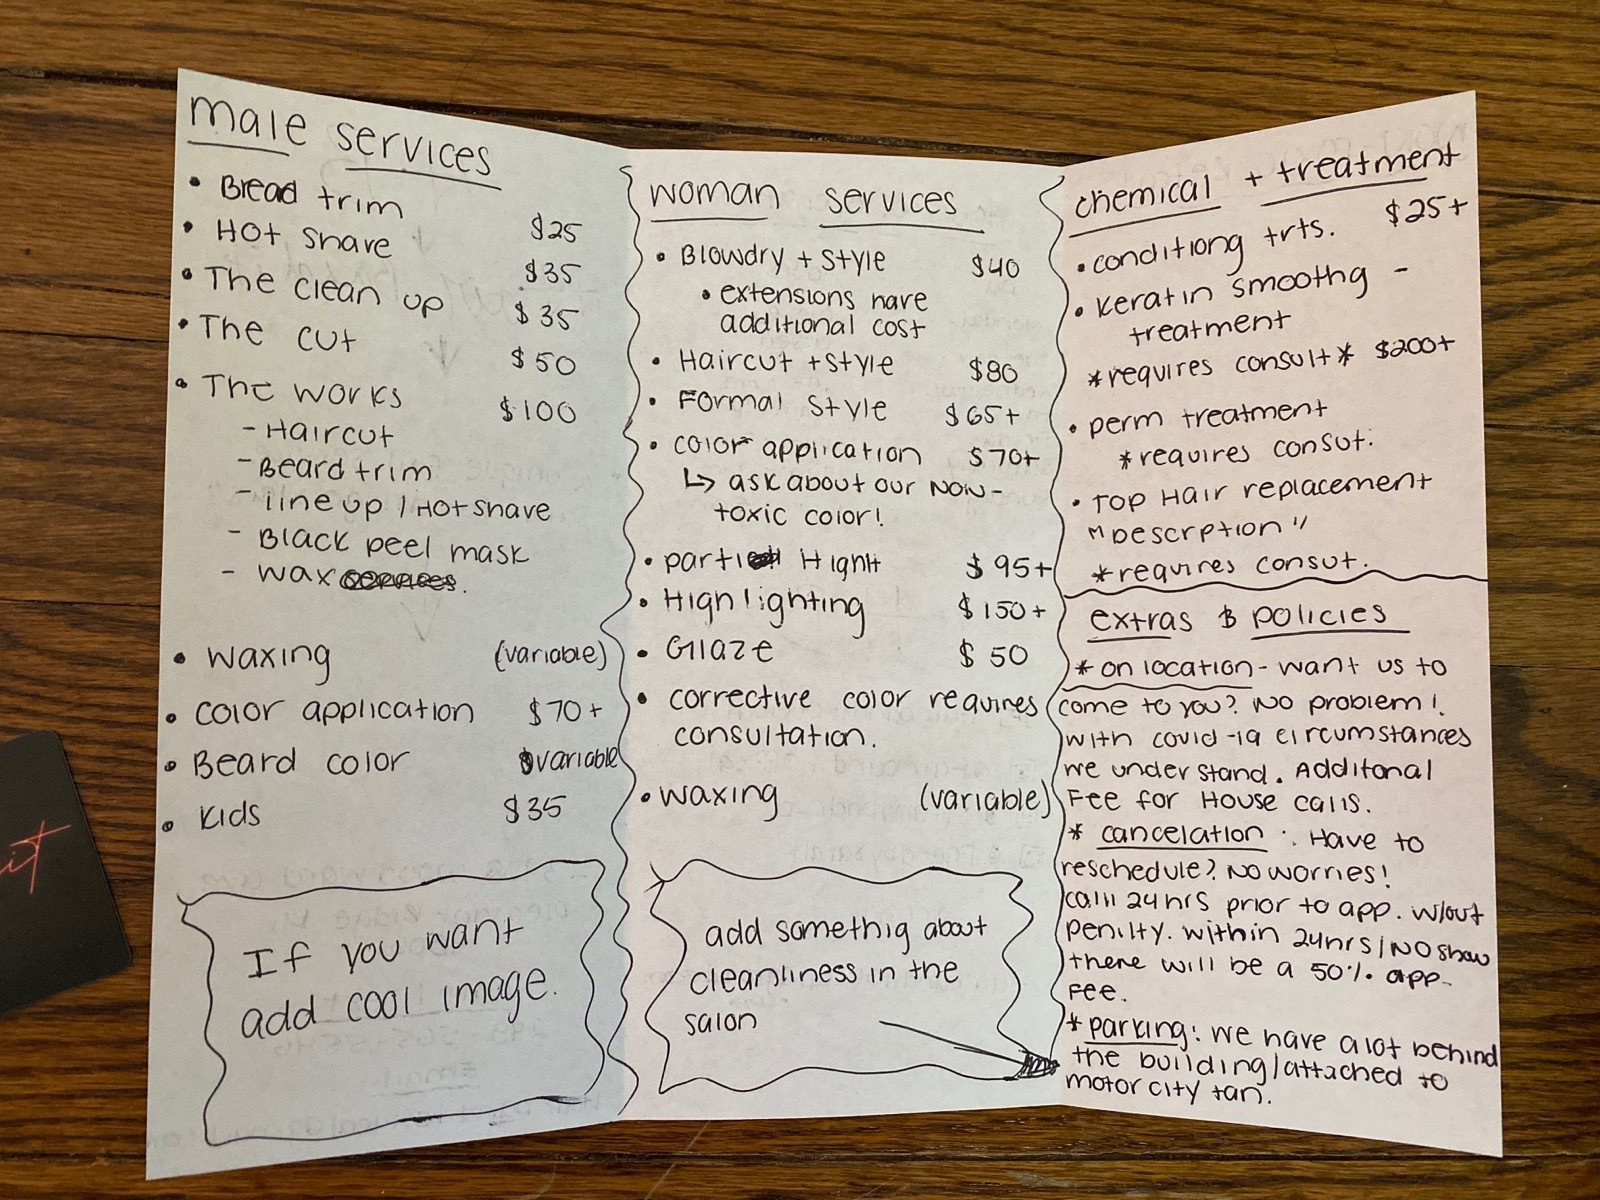 male services
• Bread trim $25
• Hot shave $35
• The clean up $35
• The cut $50
• The works $100
- Haircut
- Beard trim
- line up / Hot shave
- Black peel mask
- wax
• waxing (variable)
• color application $70+
• Beard color $variable
• Kids $35
If you want
add cool image.
woman services
• Blowdry + style $40
• extensions have
additional cost
• Haircut + style $80
• Formal style $65+
• color application $70+
↳ ask about our NON-
toxic color!
• parti Highlt $95+
• Highlighting $150+
• Glaze $50
• corrective color requires
consultation.
• waxing (variable)
add somethig about
cleanliness in the
salon
chemical + treatment
• conditiong trts. $25+
• Keratin smoothg -
treatment
*requires consult* $200+
• perm treatment
*requires consut.
• Top Hair replacement
"Descrption"
*requires consut.
extras $ policies
* on location - want us to
come to you? No problem!
with covid-19 circumstances
we understand. Additonal
Fee for House calls.
* cancelation : Have to
reschedule? No worries!
call 24hrs prior to app. w/out
penilty. within 24hrs/NO show
there will be a 50% app-
Fee.
* parking: we have a lot behind
the building/attached to
motor city tan.
it